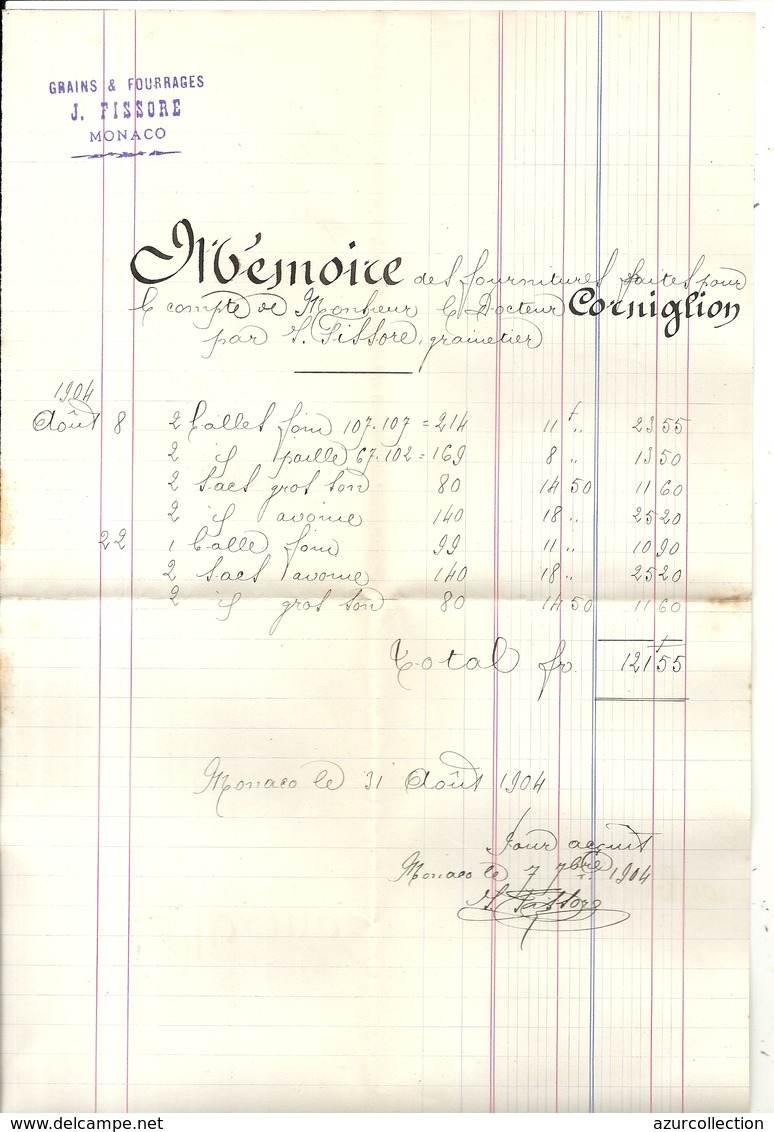 GRAINS & FOURRAGES
J. FISSORE
MONACO
Mémoire des fournitures faites pour
le compte de Monsieur le Docteur Corniglion
par J. Fissore, grainetier
1904
Août 8 2 balles foin 107.107 = 214 11 f " 23 55
2 id paille 67.102 = 169 8 " 13 50
2 sacs gros son 80 14 50 11 60
2 id avoine 140 18 " 25 20
22 1 balle foin 99 11 " 10 90
2 sacs avoine 140 18 " 25 20
2 id gros son 80 14 50 11 60
Total fr. 121 f 55
Monaco le 31 Août 1904
Pour acquit
Monaco le 7 7bre 1904
J. Fissore
www.delcampe.net azurcollection